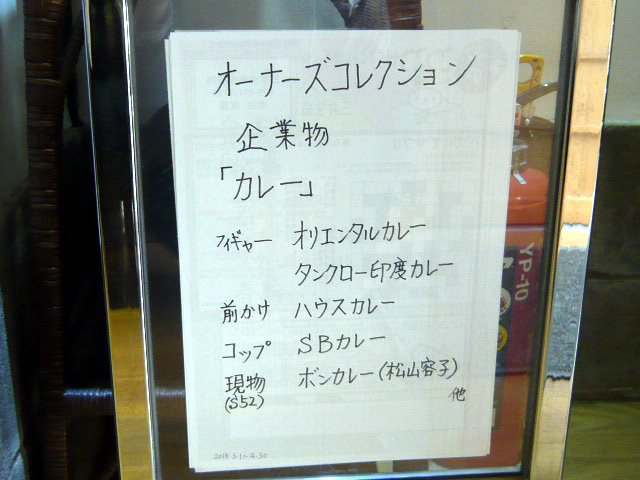 オーナーズコレクション
企業物
「カレー」
フィギャー オリエンタルカレー
タンクロー印度カレー
前かけ ハウスカレー
コップ SBカレー
現物 ボンカレー(松山容子)
(S52) 他
2018.3.1〜4.30
YP-10